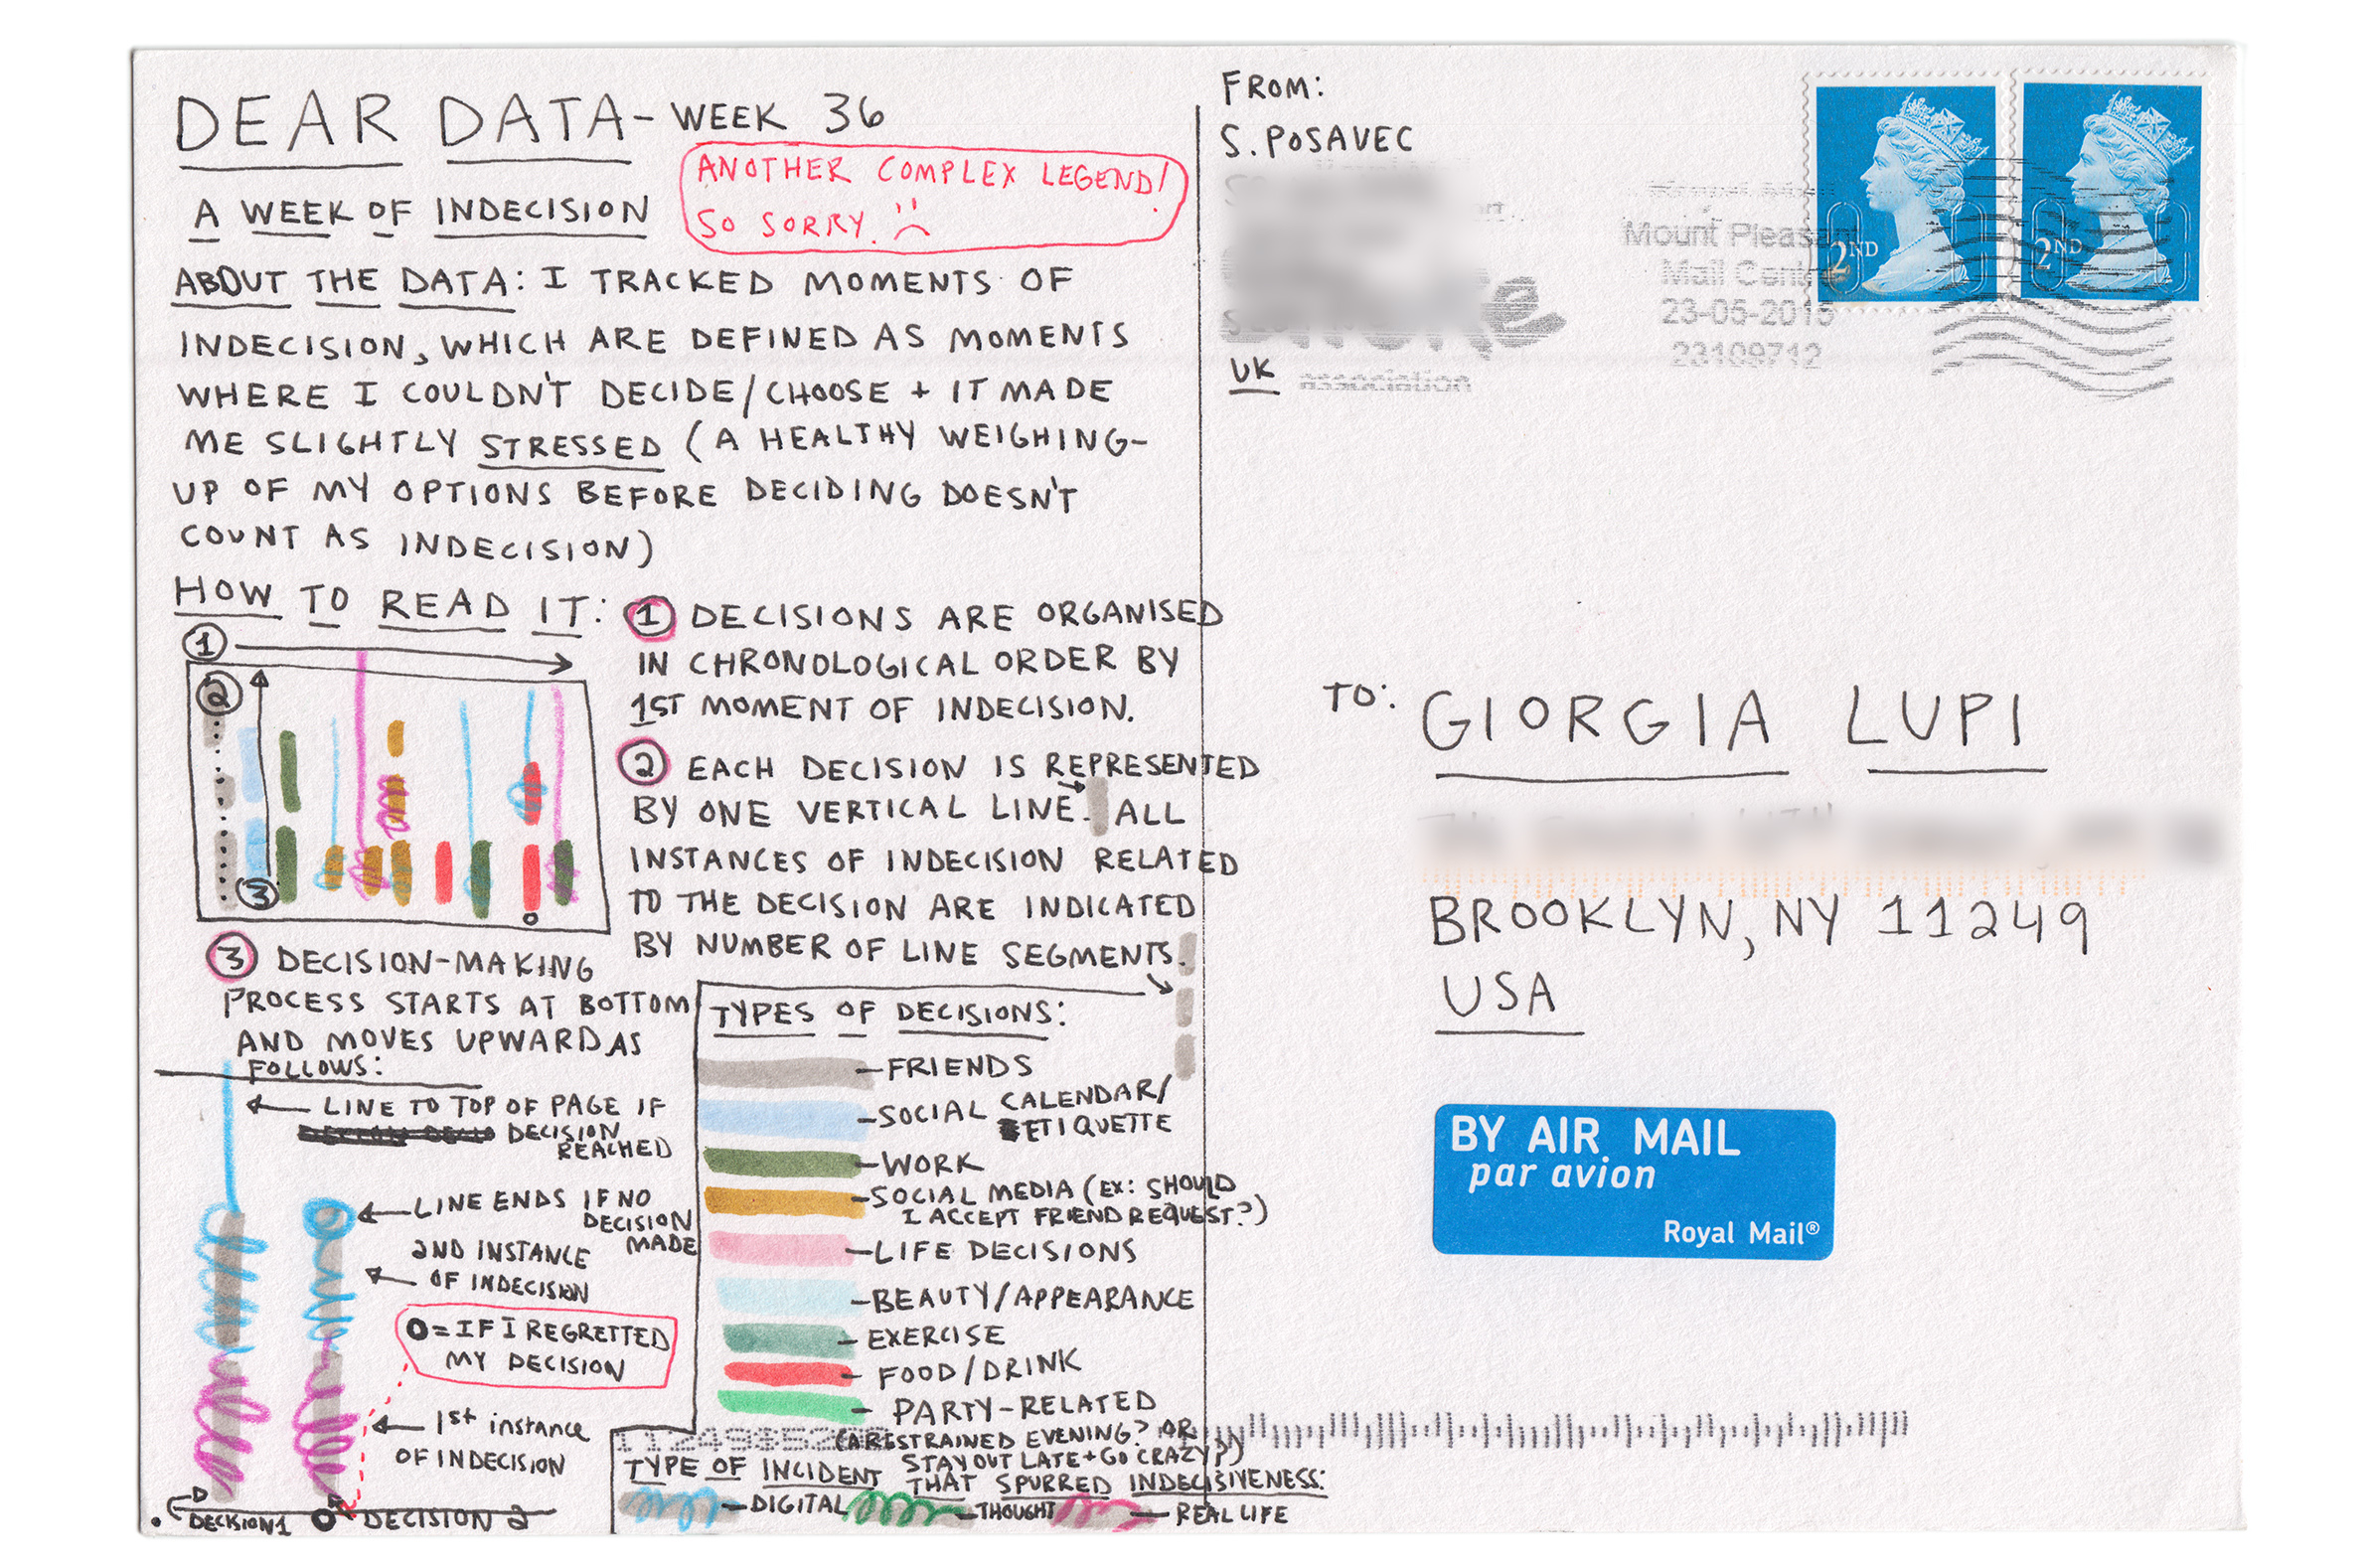 DEAR DATA - WEEK 36
ANOTHER COMPLEX LEGEND!
SO SORRY.
A WEEK OF INDECISION
ABOUT THE DATA: I TRACKED MOMENTS OF
INDECISION, WHICH ARE DEFINED AS MOMENTS
WHERE I COULDN'T DECIDE/CHOOSE + IT MADE
ME SLIGHTLY STRESSED (A HEALTHY WEIGHING-
UP OF MY OPTIONS BEFORE DECIDING DOESN'T
COUNT AS INDECISION)
HOW TO READ IT:
1
2
3
1 DECISIONS ARE ORGANISED
IN CHRONOLOGICAL ORDER BY
1ST MOMENT OF INDECISION.
2 EACH DECISION IS REPRESENTED
BY ONE VERTICAL LINE. ALL
INSTANCES OF INDECISION RELATED
TO THE DECISION ARE INDICATED
BY NUMBER OF LINE SEGMENTS.
3 DECISION-MAKING
PROCESS STARTS AT BOTTOM
AND MOVES UPWARD AS
FOLLOWS:
LINE TO TOP OF PAGE IF
DECISION
REACHED
LINE ENDS IF NO
DECISION
MADE
2ND INSTANCE
OF INDECISION
O = IF I REGRETTED
MY DECISION
1st instance
OF INDECISION
DECISION 1
DECISION 2
TYPES OF DECISIONS:
FRIENDS
SOCIAL CALENDAR/
ETIQUETTE
WORK
SOCIAL MEDIA (EX: SHOULD
I ACCEPT FRIEND REQUEST?)
LIFE DECISIONS
BEAUTY/APPEARANCE
EXERCISE
FOOD/DRINK
PARTY-RELATED
(A RESTRAINED EVENING? OR
STAY OUT LATE + GO CRAZY?)
TYPE OF INCIDENT THAT SPURRED INDECISIVENESS:
DIGITAL
THOUGHT
REAL LIFE
FROM:
S. POSAVEC
UK
association
Mount Pleasant
Mail Centre
23-05-2015
23109712
2ND
2ND
TO: GIORGIA LUPI
BROOKLYN, NY 11249
USA
BY AIR MAIL
par avion
Royal Mail®